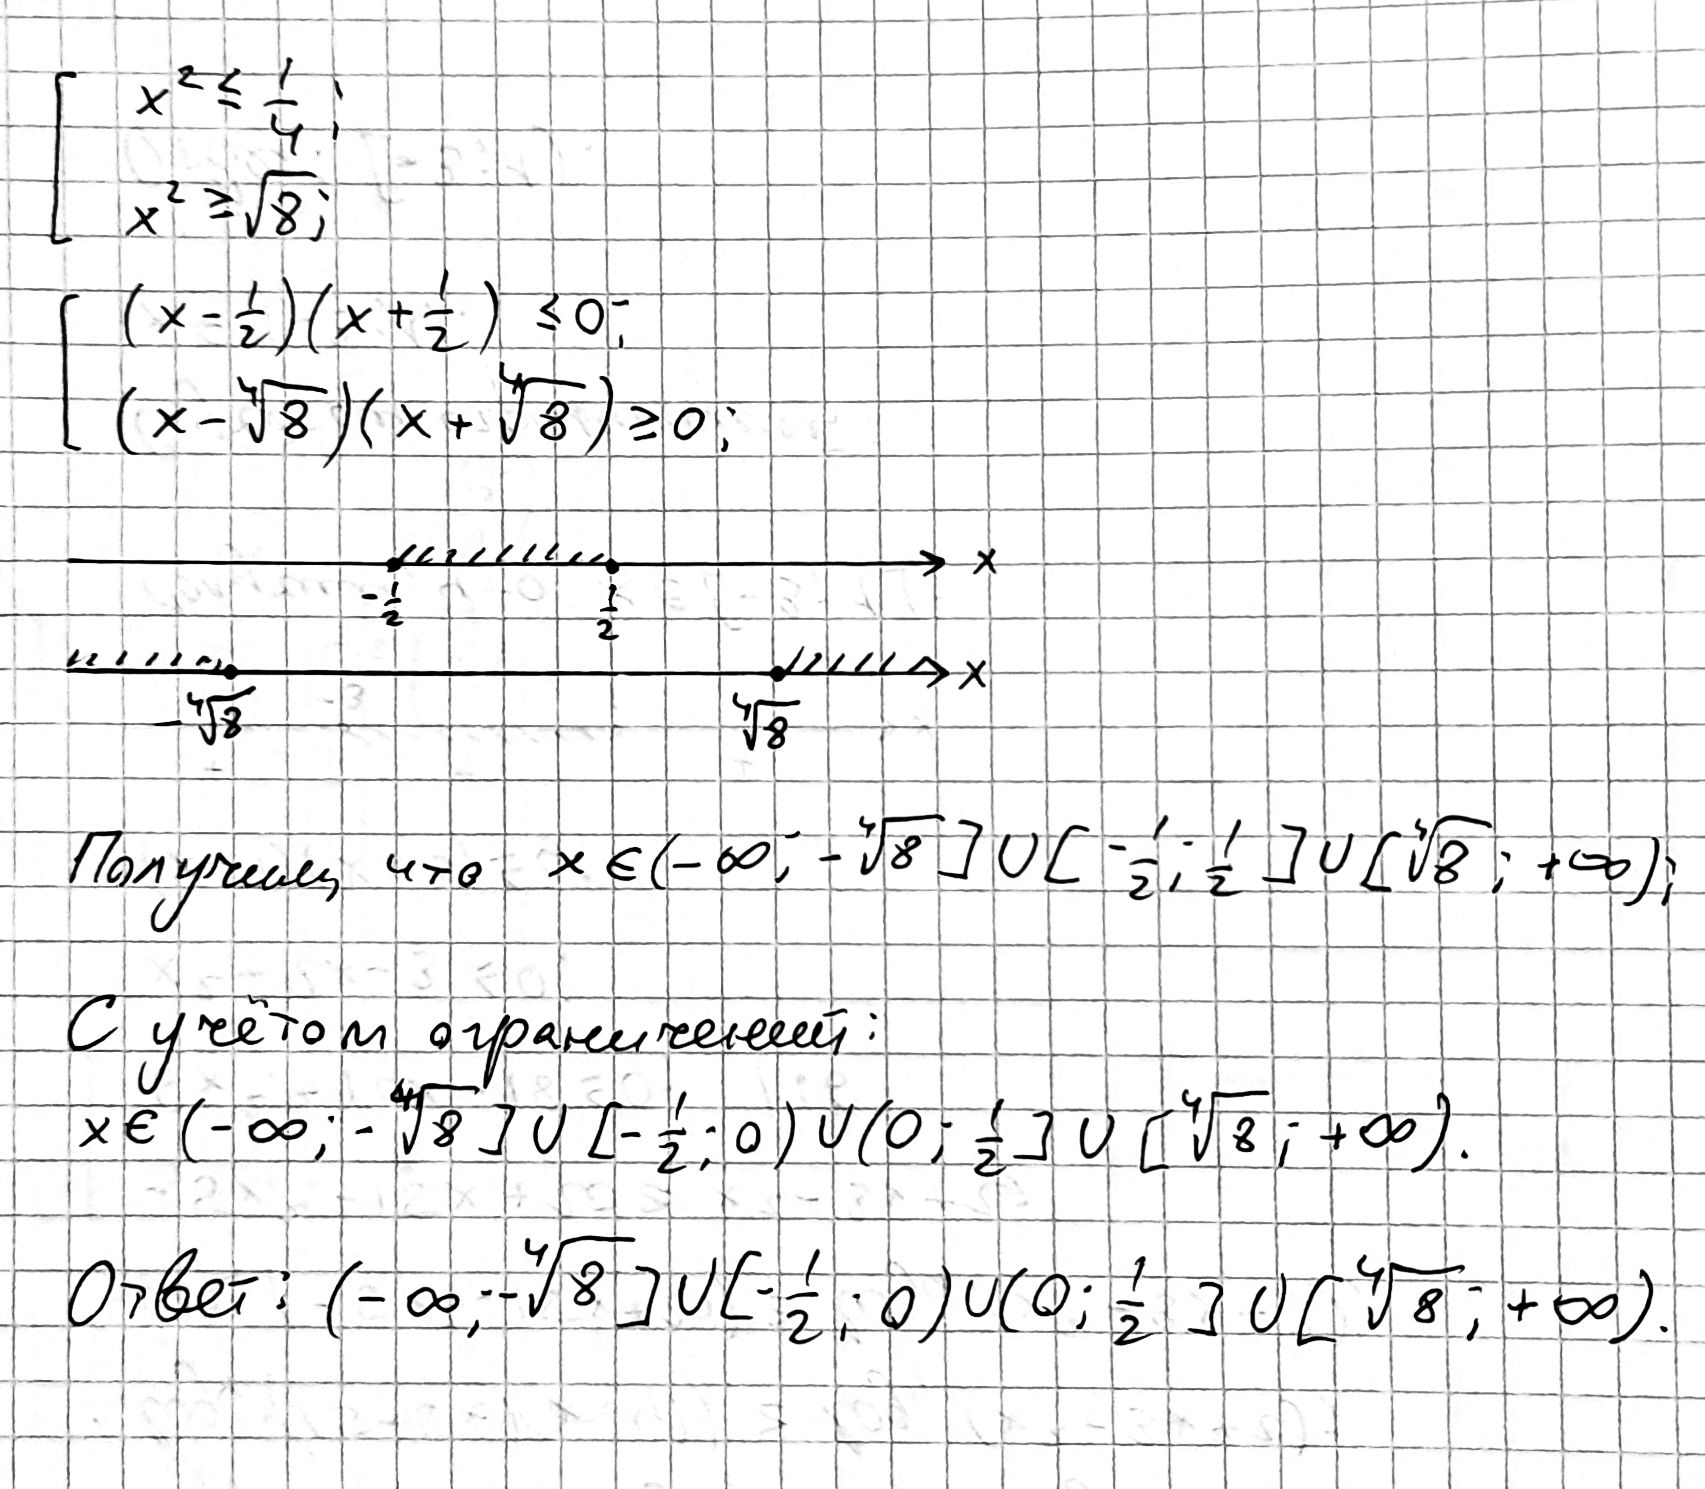 x² ≤ 1/4;
x² ≥ √8;
(x - 1/2)(x + 1/2) ≤ 0;
(x - ∜8)(x + ∜8) ≥ 0;
x
-1/2 1/2
x
-∜8 ∜8
Получим, что x ∈ (-∞; -∜8] ∪ [-1/2; 1/2] ∪ [∜8; +∞);
С учётом ограничений:
x ∈ (-∞; -∜8] ∪ [-1/2; 0) ∪ (0; 1/2] ∪ [∜8; +∞).
Ответ: (-∞; -∜8] ∪ [-1/2; 0) ∪ (0; 1/2] ∪ [∜8; +∞).